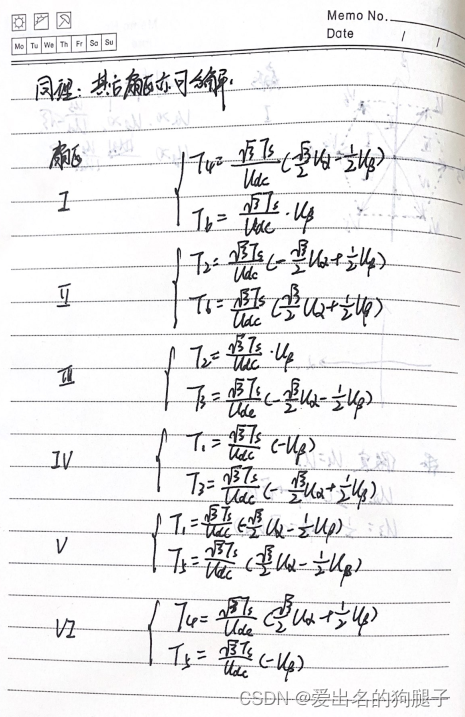 Memo No.
Date / /
Mo Tu We Th Fr Sa Su
同理:其它扇区亦可分解.
扇区
I
T₄=√3Ts/Udc(√3/2Uα-1/2Uβ)
T₆=√3Ts/Udc·Uβ
II
T₂=√3Ts/Udc(-√3/2Uα+1/2Uβ)
T₆=√3Ts/Udc(√3/2Uα+1/2Uβ)
III
T₂=√3Ts/Udc·Uβ
T₃=√3Ts/Udc(-√3/2Uα-1/2Uβ)
IV
T₁=√3Ts/Udc(-Uβ)
T₃=√3Ts/Udc(-√3/2Uα+1/2Uβ)
V
T₁=√3Ts/Udc(-√3/2Uα-1/2Uβ)
T₅=√3Ts/Udc(√3/2Uα-1/2Uβ)
VI
T₄=√3Ts/Udc(√3/2Uα+1/2Uβ)
T₅=√3Ts/Udc(-Uβ)
CSDN @爱出名的狗腿子